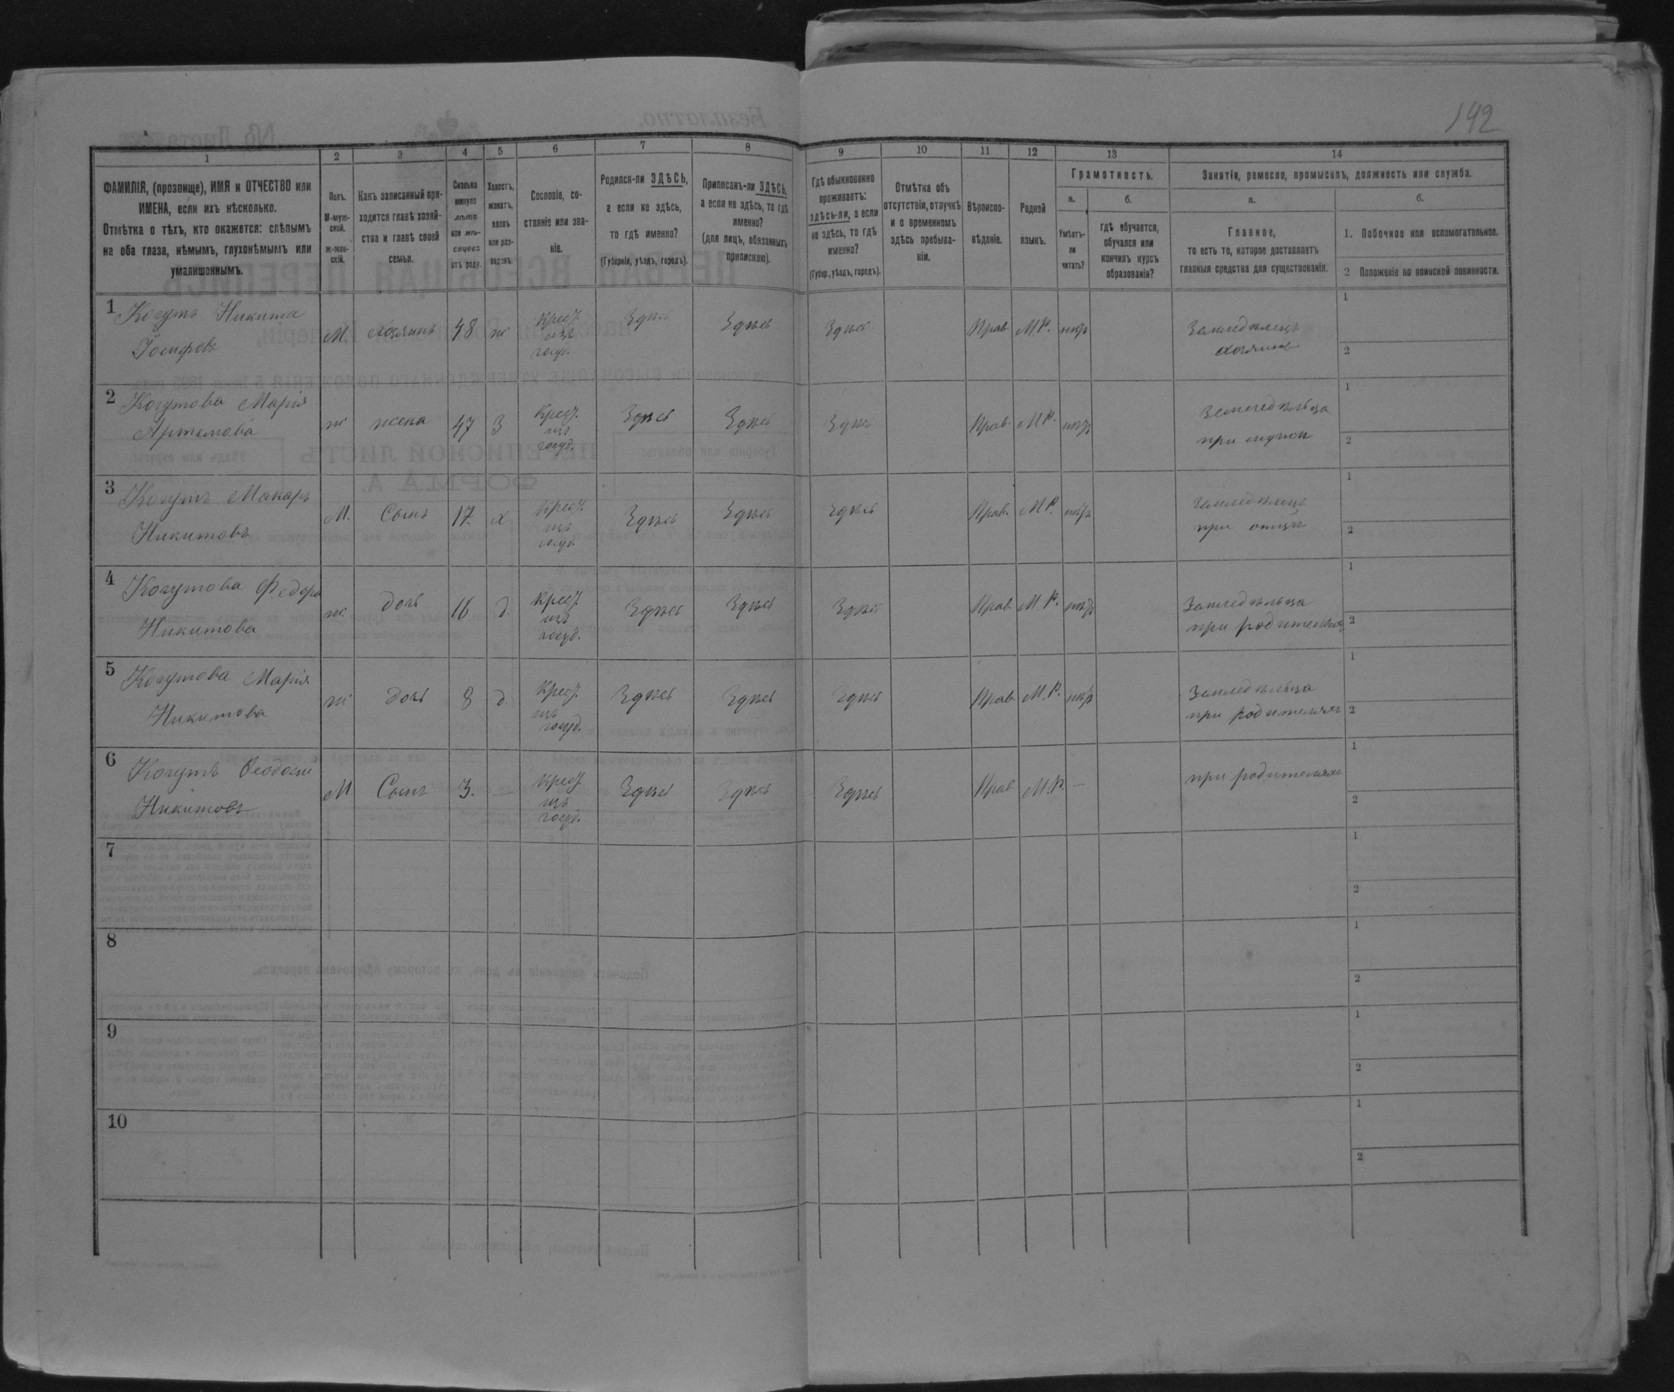 142
1 2 3 4 5 6 7 8 9 10 11 12 13 14
ФАМИЛІЯ, (прозвище), ИМЯ и ОТЧЕСТВО или
ИМЕНА, если ихъ нѣсколько.
Отмѣтка о тѣхъ, кто окажется: слѣпымъ
на оба глаза, нѣмымъ, глухонѣмымъ или
умалишоннымъ.
Полъ.
М-муж-
ской.
ж-жен-
скій.
Какъ записанный при-
ходится главѣ хозяй-
ства и главѣ своей
семьи.
Сколько
минуло
лѣтъ
или мѣ-
сяцевъ
отъ роду.
Холостъ,
женатъ,
вдовъ
или раз-
веденъ.
Сословіе, со-
стояніе или зва-
ніе.
Родился-ли ЗДѢСЬ,
а если не здѣсь,
то гдѣ именно?
(Губернія, уѣздъ, городъ).
Приписанъ-ли ЗДѢСЬ,
а если не здѣсь, то гдѣ
именно?
(для лицъ, обязанныхъ
припискою).
Гдѣ обыкновенно
проживаетъ:
здѣсь-ли, а если
не здѣсь, то гдѣ
именно?
(Губер., уѣздъ, городъ).
Отмѣтка объ
отсутствіи, отлучкѣ
и о временномъ
здѣсь пребыва-
ніи.
Вѣроиспо-
вѣданіе.
Родной
языкъ.
Грамотность.
а.
Умѣетъ-
ли
читать?
б.
гдѣ обучается,
обучался или
кончилъ курсъ
образованія?
Занятіе, ремесло, промыселъ, должность или служба.
а.
Главное,
то есть то, которое доставляетъ
главныя средства для существованія.
б.
1. Побочное или вспомогательное.
2 Положеніе по воинской повинности.
1 Когутъ Никита М. хозяинъ 48 ж Крест. Здѣсь Здѣсь Здѣсь Прав. М.Р. нѣтъ Земледѣлецъ 1
Іосифовъ изъ госуд. хозяинъ 2
2 Когутова Марія ж жена 47 З Крест. Здѣсь Здѣсь Здѣсь Прав. М.Р. нѣтъ Земледѣльца 1
Артемова изъ госуд. при мужѣ 2
3 Когутъ Макаръ М. Сынъ 17. х Крест. Здѣсь Здѣсь Здѣсь Прав. М.Р. нѣтъ Земледѣлецъ 1
Никитовъ изъ госуд. при отцѣ 2
4 Когутова Федора ж. дочь 16 д. Крест. Здѣсь Здѣсь Здѣсь Прав. М.Р. нѣтъ Земледѣльца 1
Никитова изъ госуд. при родителяхъ 2
5 Когутова Марія ж дочь 8 д. Крест. Здѣсь Здѣсь Здѣсь Прав. М.Р. нѣтъ Земледѣльца 1
Никитова изъ госуд. при родителяхъ 2
6 Когутъ Феодосій М Сынъ 3. — Крест. Здѣсь Здѣсь Здѣсь Прав М.Р. — при родителяхъ 1
Никитовъ изъ госуд. 2
7 1
2
8 1
2
9 1
2
10 1
2